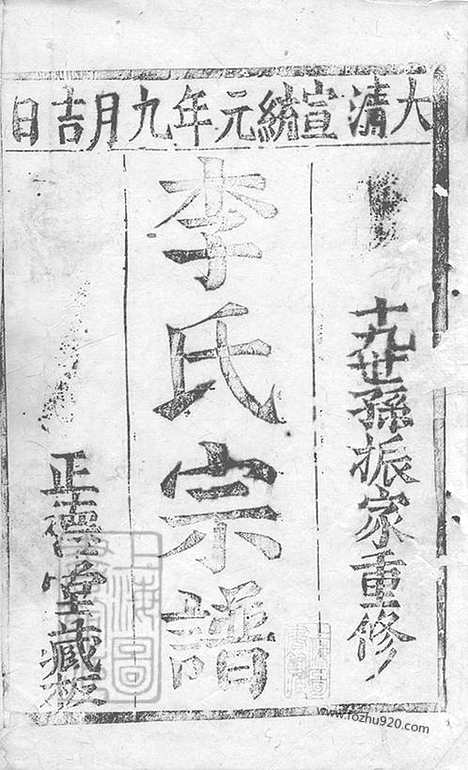 大清宣統元年九月吉日
十九世孫振家重修
李氏宗譜
正德堂藏板
www.fozhu920.com